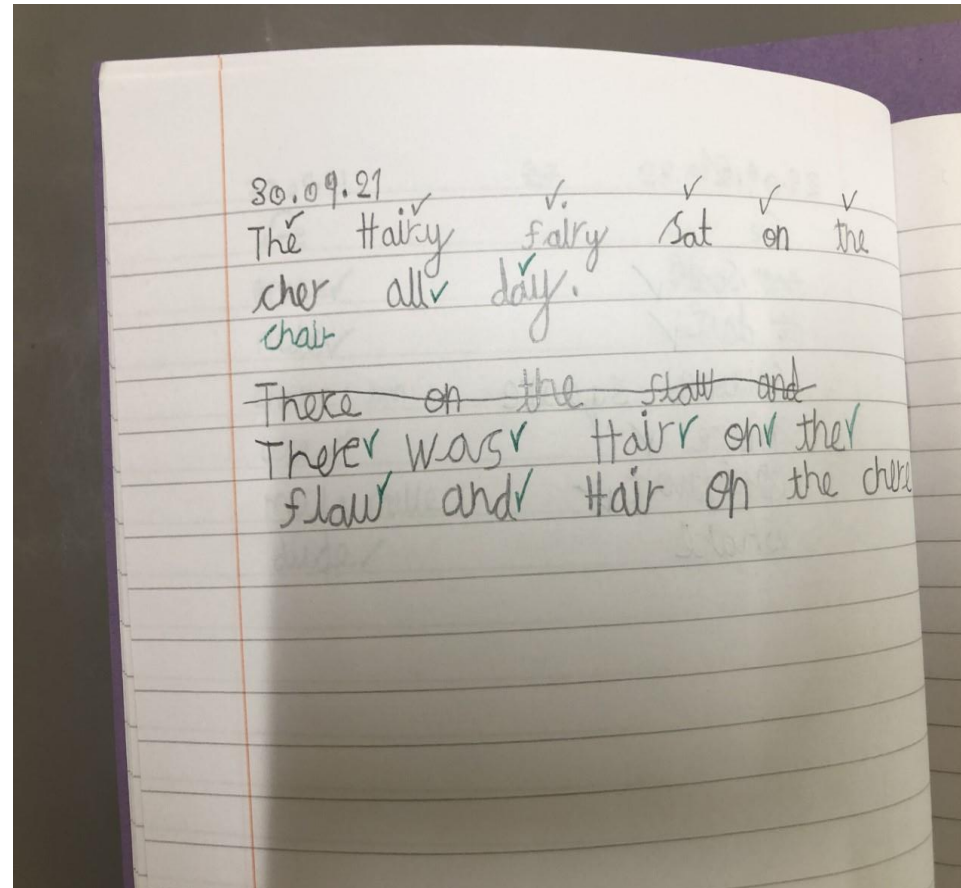 30.09.21
The Hairy fairy Sat on the
cher all day.
chair
There on the flaw and
There was Hair on the
flaw and Hair on the chere